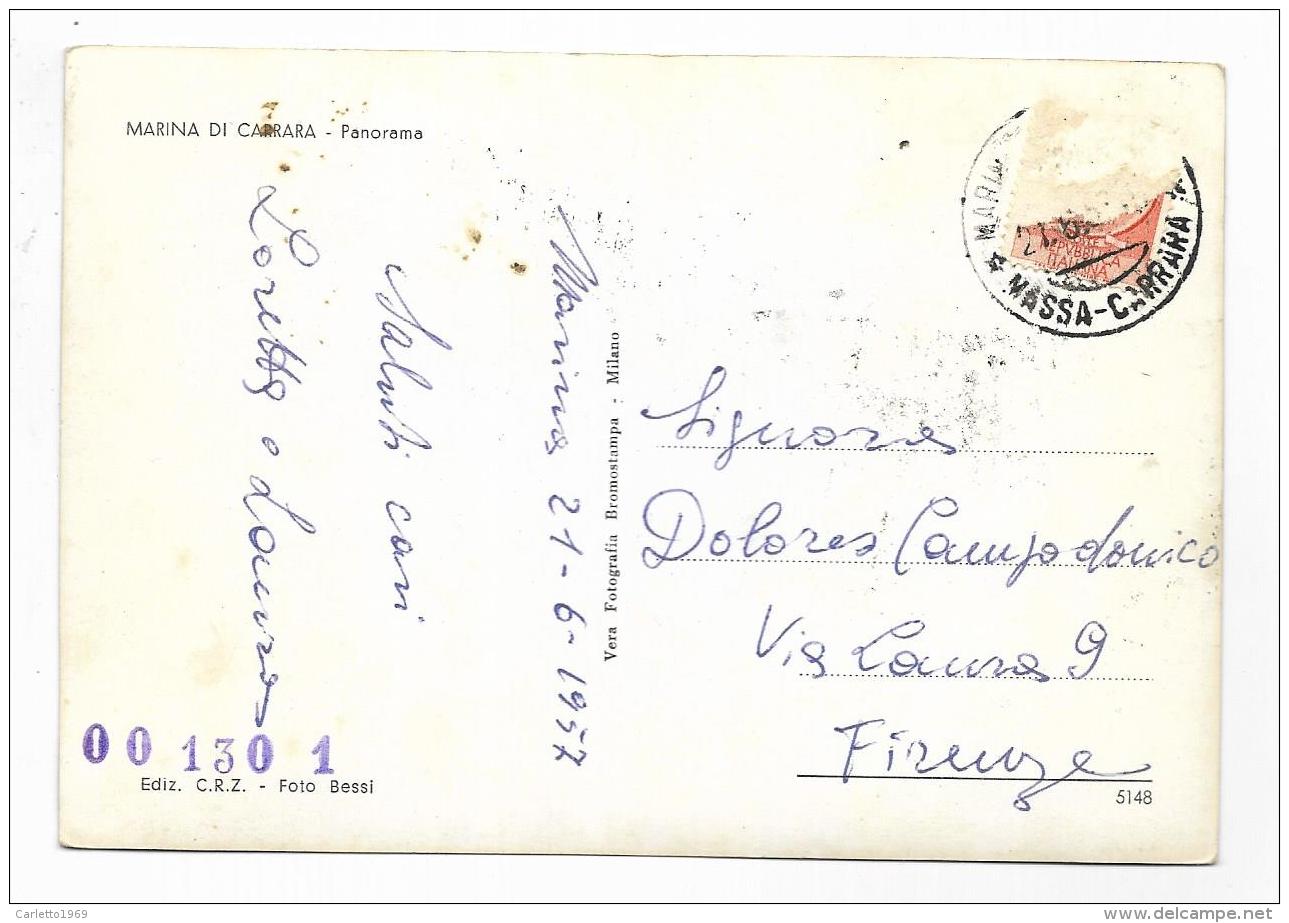 MARINA DI CARRARA - Panorama
Marina 21-6-1957
Saluti cari
Loretta e Lauro
Vera Fotografia Bromostampa - Milano
MARIN
21.6
* MASSA-CARRARA *
POSTE
REPVBBLICA
ITALIANA
Signora
Dolores Campodonico
Via Laura 9
Firenze
00 130 1
Ediz. C.R.Z. - Foto Bessi
5148
Carletto1969
delcampe.net